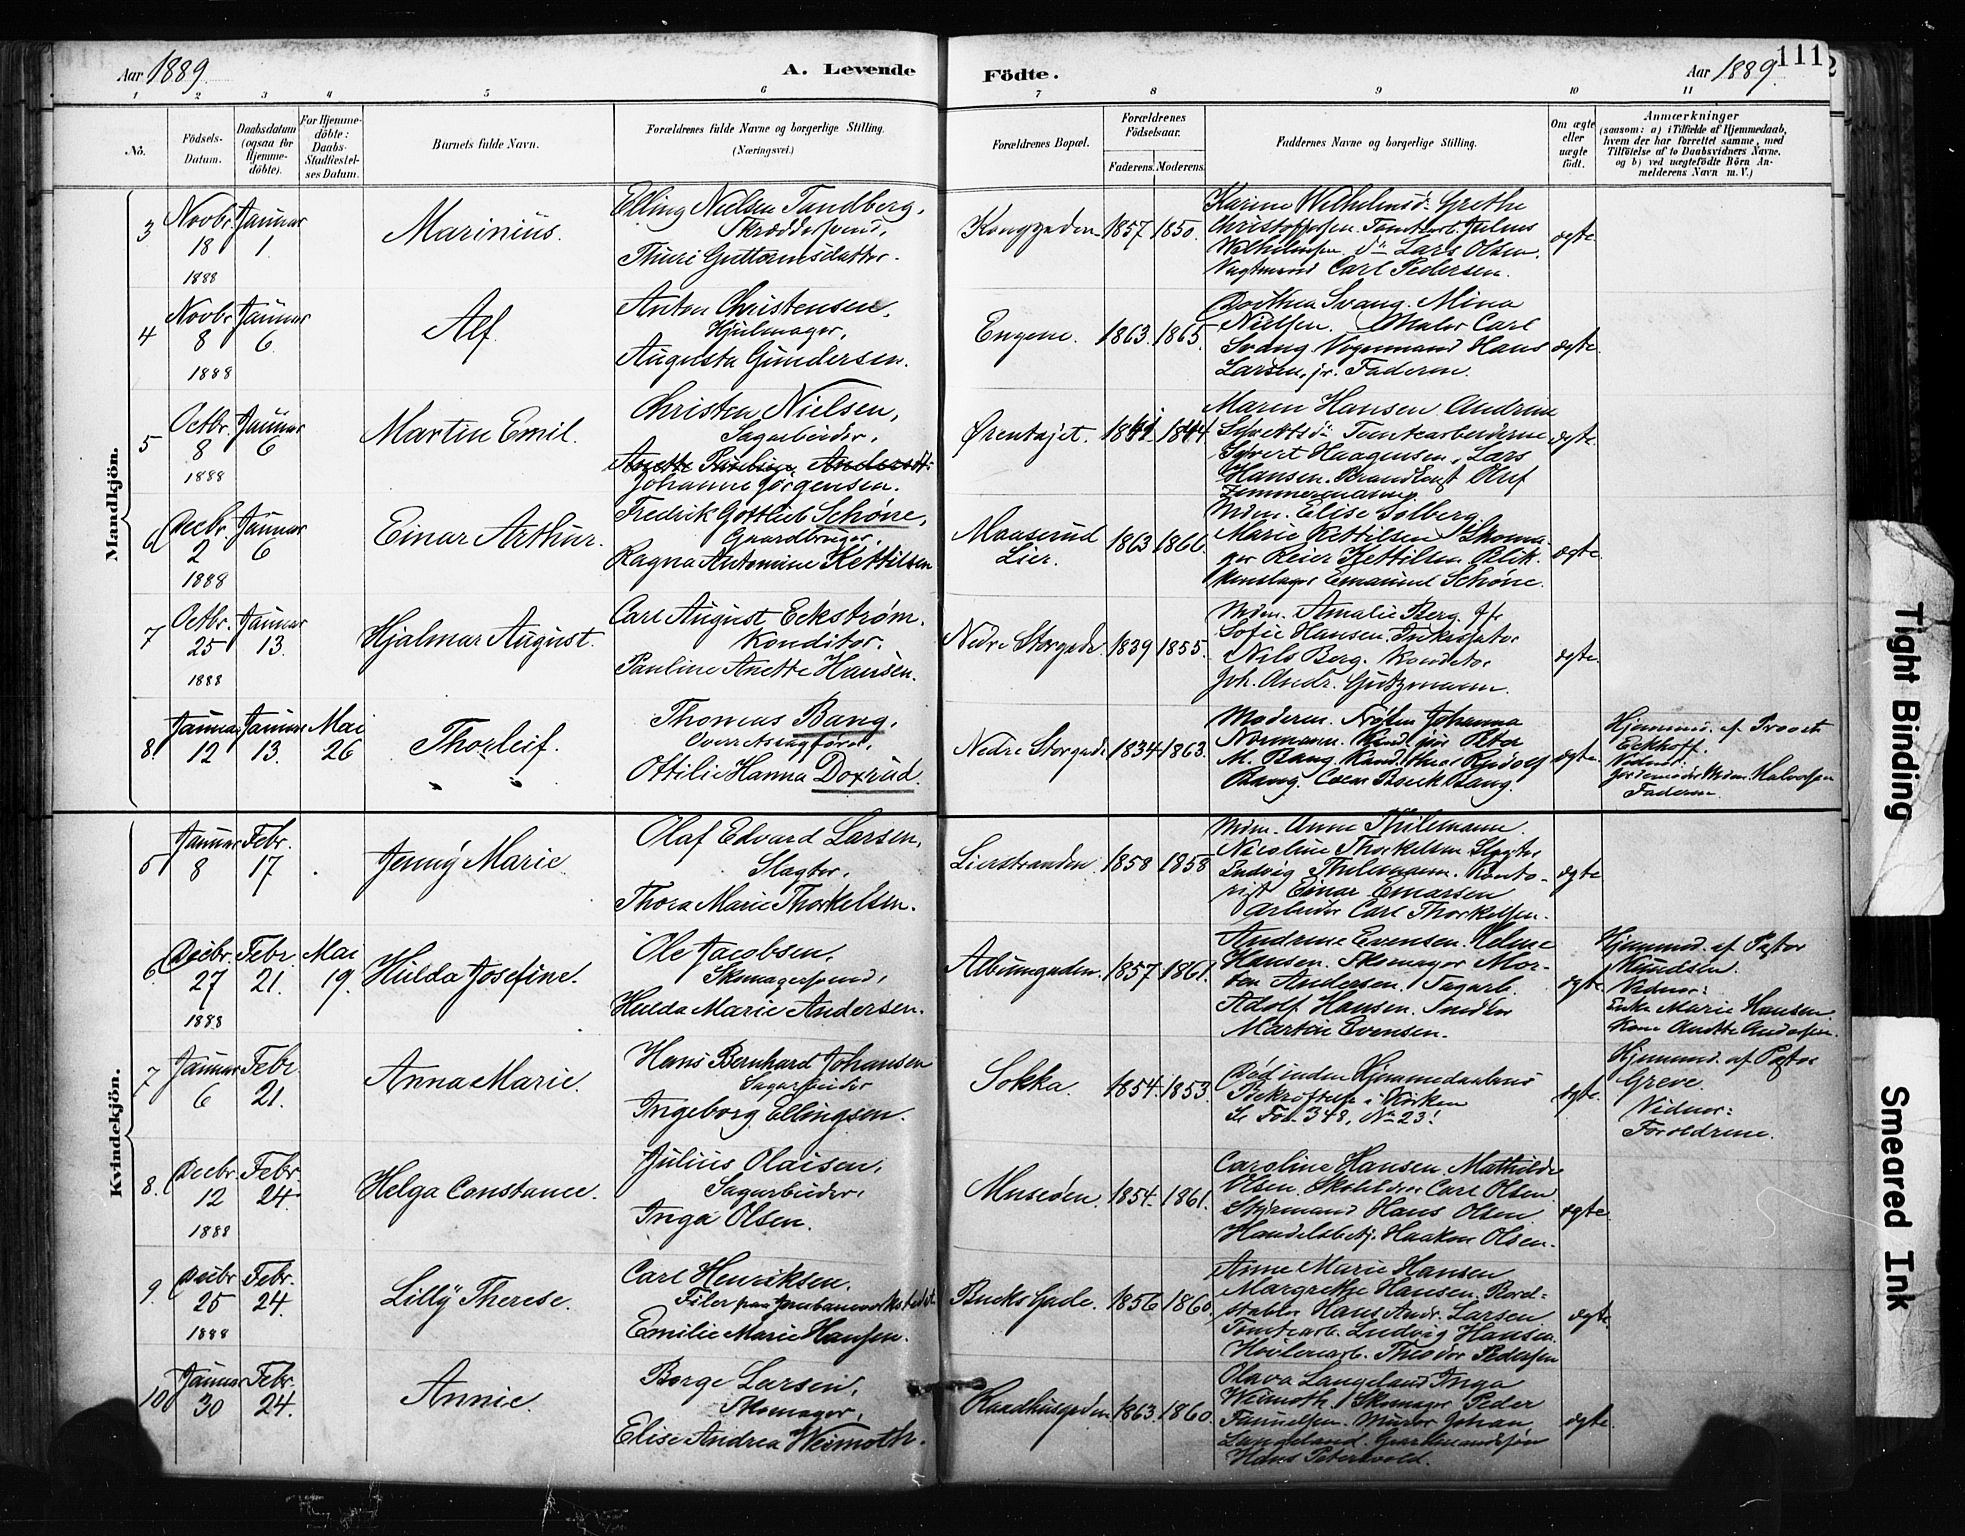 Aar 1889. A. Levende Födte. Aar 1889. 111
1 2 3 4 5 6 7 8 9 10 11
No.
Födsels-Datum.
Daabsdatum (ogsaa for Hjemme-döbte).
For Hjemme-döbte: Daabs-Stadfæstel-ses Datum.
Barnets fulde Navn.
Forældrenes fulde Navne og borgerlige Stilling.
(Næringsvei.)
Forældrenes Bopæl.
Forældrenes Födselsaar.
Faderens. Moderens.
Faddernes Navne og borgerlige Stilling.
Om ægte eller uægte födt.
Anmærkninger
(saasom: a) i Tilfælde af Hjemmedaab, hvem der har forrettet samme, med Tilföielse af to Daabsvidners Navne, og b) ved uægtefödte Börn An-melderens Navn m. V.)
Mandkjön.
3 Novbr. 18 1888 Januar 1. Marinius.
Elling Nielsen Tandberg,
Skræddersvend,
Thuri Guttormsdatter.
Konggaden 1857 1850.
Karine Wilhelmsd. Grethe
Christoffersen. Tomtearb. Julius
Wilhelmsen do Lars Olsen.
Vagtmand Carl Pedersen.
ægte.
4 Novbr. 8 1888 Januar 6. Alf.
Anton Christensen,
Hjulmager,
Augusta Gundersen.
Engene. 1863. 1865.
Dorthea Svang. Mina
Nielsen. Maler Carl
Svang Vognmand Hans
Larsen, jr. Faderen.
ægte.
5 Octbr. 8 1888 Januar 6 Martin Emil.
Christen Nielsen,
Sagarbeider,
Anette Pauline Andersdt.
Johanne Jörgensen.
Ørentøjet. 1841. 1844
Maren Hansen Andrine
Syvertsd. Tomtearbeiderne
Syvert Haagensen, Lars
Hansen. Brandkonst Oluf
Zimmermann.
ægte.
6 Decbr. 2 1888 Januar 6 Einar Arthur.
Fredrik Gottlieb Schöne,
Gaardbruger,
Ragna Antomine Kettilsen
Maaserud
Lier.
1863 1866.
Mdm. Elise Solberg
Marie Kettilsen Skoma-
ger Reier Kettilsen Blik-
kenslager Emanuel Schöne.
ægte.
7 Octbr. 25 1888 Januar 13. Hjalmar August.
Carl August Eckström.
Konditor.
Pauline Anette Hansen.
Nedre Storgade. 1839 1855.
Mdm. Amalie Berg. Fr.
Sofie Hansen. Inkassator
Nils Berg. Konditor
Joh. Andr. Gutzmann.
ægte.
8. Januar 12 Januar 13. Mai 26 Thorleif.
Thomas Bang,
Overretssagförer,
Ottilie Hanna Doxrud.
Nedre Storgade 1834 1863.
Moderen. Fröken Johanna
Normann. Kand. jur Peter
M. Bang. Kand. theol Rudolf
Bang. Cæsar Boeck Bang.
ægte.
Hjemmed. af Provst
Eckhoff.
Vidner:
Jordemoder Mdm. Halvorsen
Faderen.
Kvindekjön.
5 Januar 8 Febr. 17 Jenny Marie.
Olaf Edvard Larsen,
Slagter,
Thora Marie Thorkelsen.
Lierstranden 1858 1858
Mdm. Anne Thilemann.
Nicoline Thorkelsen Slagter
Ludvig Thilemann. Konto-
rist Einar Einarsen
Arbeider Carl Thorkelsen.
ægte
6. Decbr. 27 1888 Febr. 21. Mai 19. Hulda Josefine.
Ole Jacobsen,
Skomagersvend,
Hulda Marie Andersen.
Albumgaden. 1857. 1861.
Andrine Evensen. Helene
Hansen. Skomager Mor-
ten Andersen. Sagarb.
Adolf Hansen. Smeden
Martin Evensen.
ægte.
Hjemmed. af Pastor
Knudsen.
Vidner:
Enke Marie Hansen.
Kone Anette Andersen.
7 Januar 6 Febr. 21. Anna Marie.
Hans Bernhard Johansen
Sagarbeider
Ingeborg Ellingsen.
Sokka. 1854. 1853.
Död inden Hjemmedaabens
Bekræftelse i Kirken
Se Fol. 348, No 23!
ægte.
Hjemmed. af Pastor
Greve.
Vidner:
Forældrene.
8. Decbr. 12 1888 Febr. 24. Helga Constance.
Julius Olaisen,
Sagarbeider,
Inga Olsen.
Museöen. 1854. 1861.
Caroline Hansen. Mathilde
Olsen. Skolelærer Carl Olsen.
Styrmand Hans Olsen
Handelsbetj. Haakon Olsen.
ægte.
9. Decbr 25 1888 Febr. 24. Lilly Therese.
Carl Henriksen.
Filer paa Jernbaneværkstedet
Emilie Marie Hansen.
Bucks Gade. 1856 1860.
Anne Marie Hansen
Margrethe Hansen. Bord-
stabler Hans Andr. Larsen
Tomtearb. Ludvig Hansen.
Hövleriarb. Theodor Pedersen
ægte.
10 Januar 30 Febr. 24. Annie.
Borge Larsen,
Skomager,
Elise Andrea Weimoth.
Raadhusgaden 1863. 1860.
Olava Langeland Inga
Weimoth. Skomager Peder
Samuelsen. Murer Johan
Langeland. Gaardmandssön
Hans Petersvold.
ægte.
Tight Binding
Smeared Ink